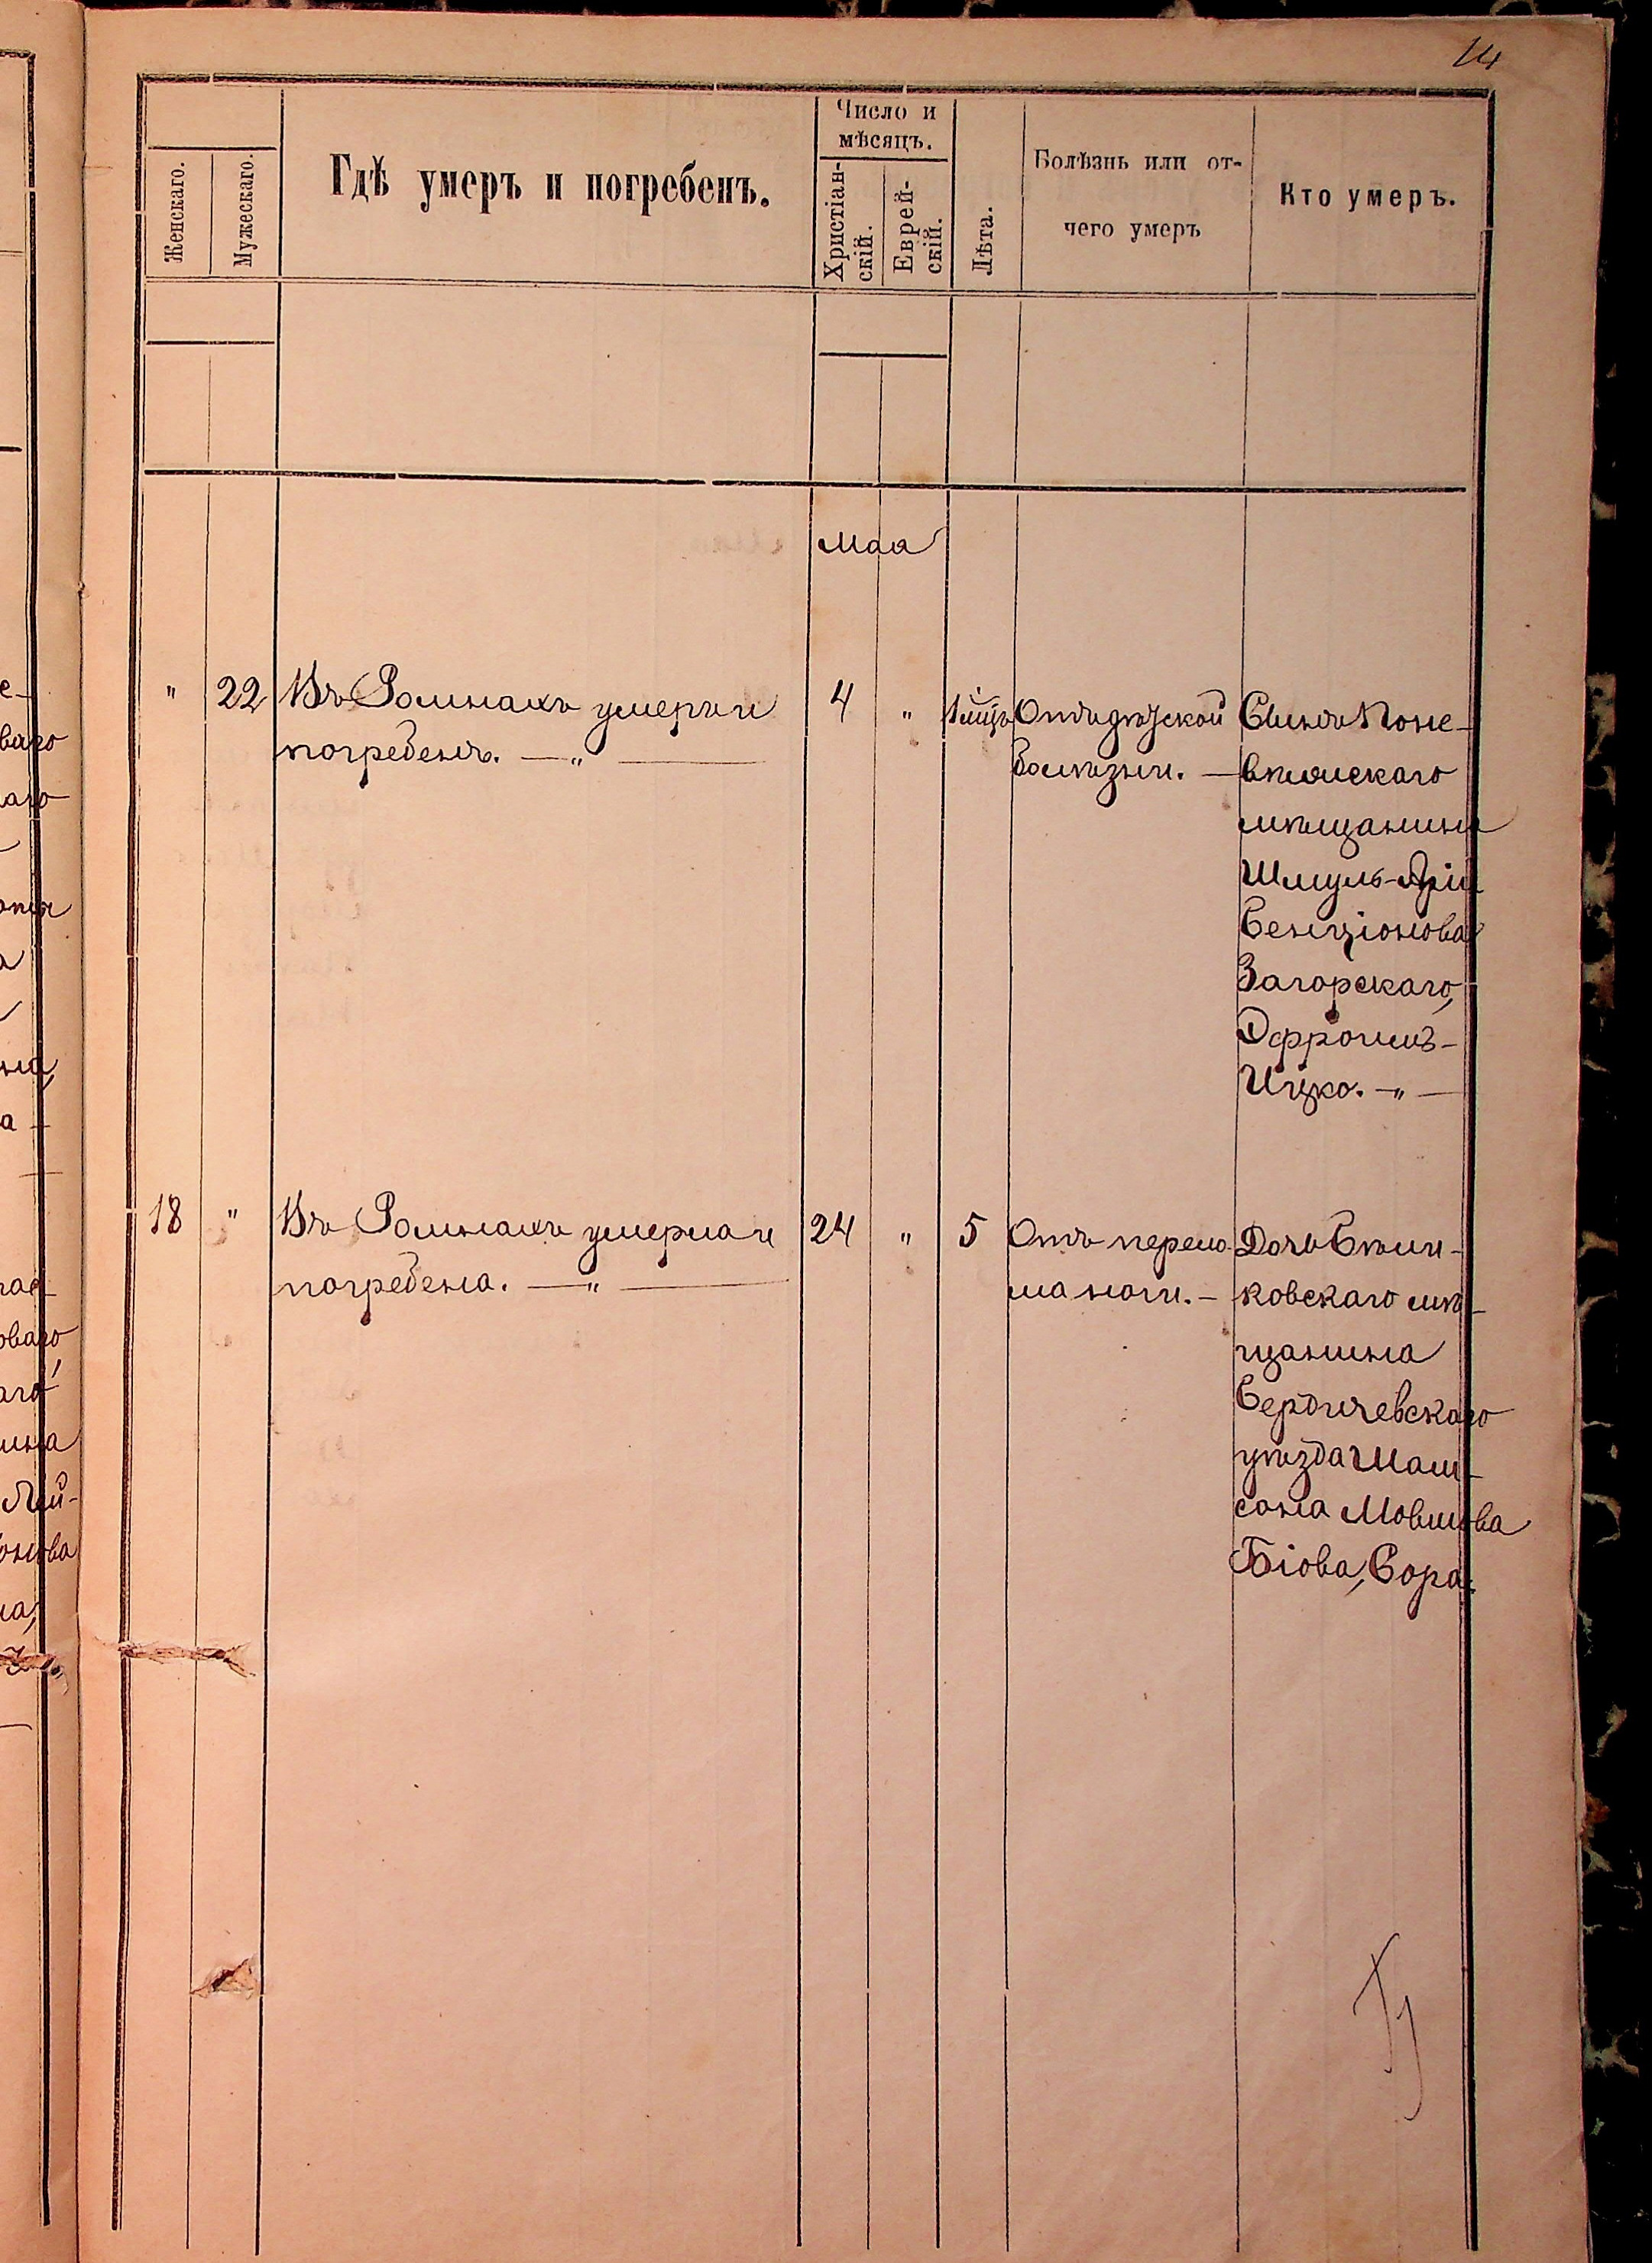 14
Женскаго.
Мужескаго.
Гдѣ умеръ и погребенъ.
Число и
мѣсяцъ.
Христіан-
скій.
Еврей-
скій.
Лѣта.
Болѣзнь или от-
чего умеръ
Кто умеръ.
Мая
" 22 Въ Ромнахъ умеръ и
погребенъ. — " —
4 " 1 мѣцъ
Отъ дѣтской
болѣзни. —
Сынъ Поне-
вѣжскаго
мѣщанина
Шмуль-Арія
Бенціонова
Загорскаго,
Эфроимъ-
Ицко. — " —
18 " Въ Ромнахъ умерла и
погребена. — " —
24 " 5
Отъ перело-
ма ноги. —
Дочь Бѣли-
ковскаго мѣ-
щанина
Бердичевскаго
уѣзда Шам-
сона Мовшова
Біова, Сора.
е-
ваго
аго
а
на,
а —
ваго
аго
ина
Лей-
онова
на,